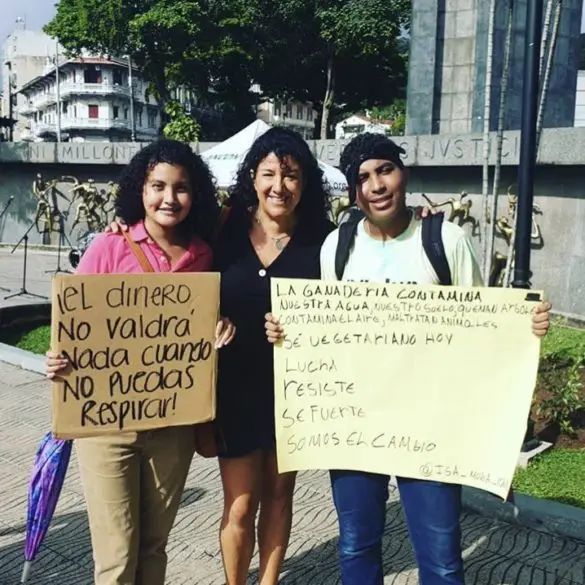 NI MILLONT
JVSTI
¡EL DINERO,
NO VALDRÁ
NADA CUANDO
NO PUEDAS
RESPIRAR!
LA GANADERIA CONTAMINA
NUESTRA AGUA NUESTRO SUELO, QUEMAN ARBOLES
CONTAMINA EL AIRE, MALTRATAN ANIMALES
SÉ VEGETARIANO HOY
LUCHA
RESISTE
SE FUERTE
SOMOS EL CAMBIO